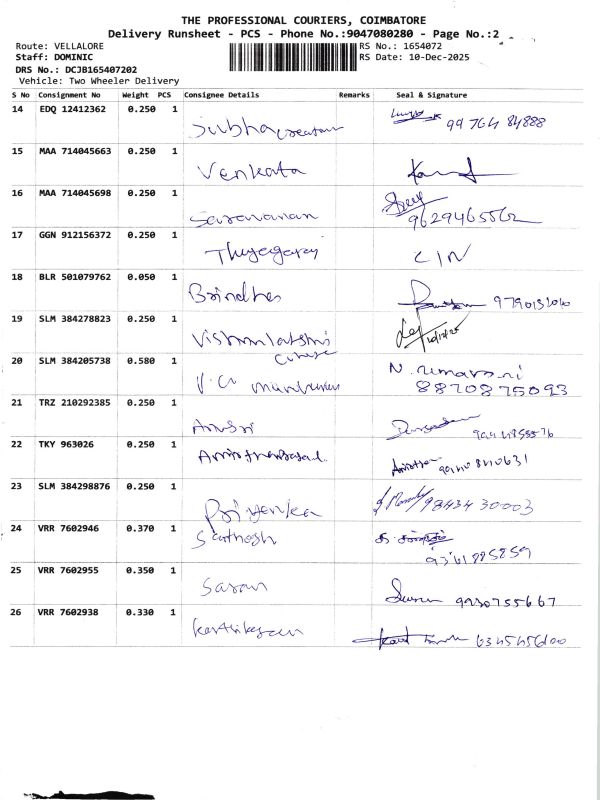 THE PROFESSIONAL COURIERS, COIMBATORE
Delivery Runsheet - PCS - Phone No.:9047080280 - Page No.:2
Route: VELLALORE RS No.: 1654072
Staff: DOMINIC RS Date: 10-Dec-2025
DRS No.: DCJB165407202
Vehicle: Two Wheeler Delivery
S No Consignment No Weight PCS Consignee Details Remarks Seal & Signature
14 EDQ 12412362 0.250 1
Subha creation 99764 84888
15 MAA 714045663 0.250 1
Venkata
16 MAA 714045698 0.250 1
Saravanan 9629465562
17 GGN 912156372 0.250 1
Thyagaraj C/N
18 BLR 501079762 0.050 1
Brindha
19 SLM 384278823 0.250 1
10/12/25
20 SLM 384205738 0.580 1
V.C N.
8870875093
21 TRZ 210292385 0.250 1
22 TKY 963026 0.250 1
23 SLM 384298876 0.250 1
Priyenka 98434 30003
24 VRR 7602946 0.370 1
Santhosh
9361885859
25 VRR 7602955 0.350 1
Saran 9930755667
26 VRR 7602938 0.330 1
Karthikeyan